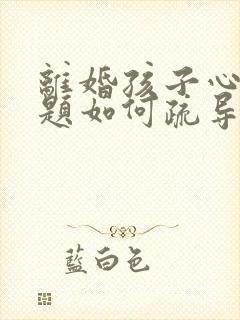 離婚孩子心
題如何疏导
藍白色